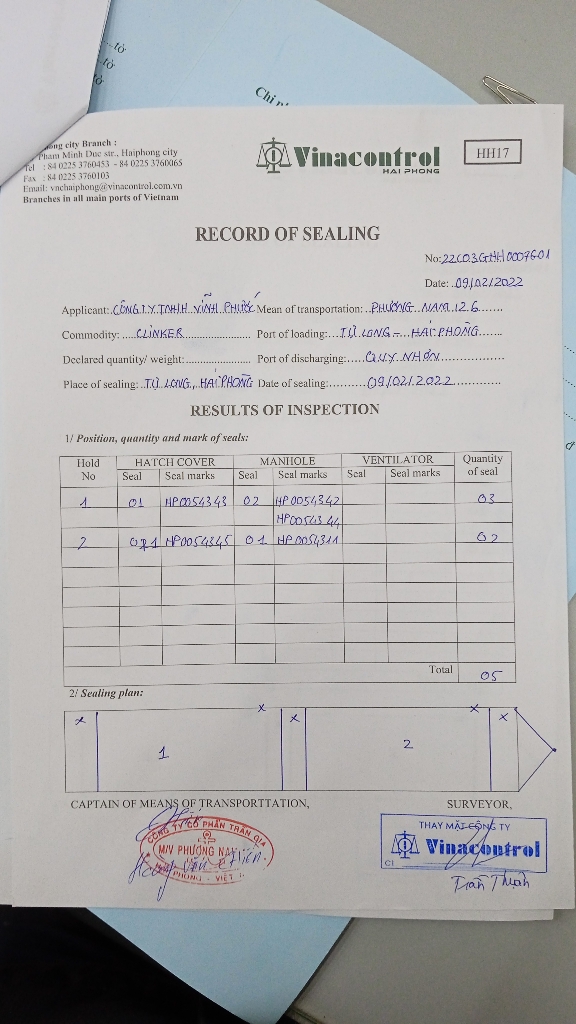 tờ
tờ
tờ
Chi n
ong city Branch :
Pham Minh Duc str., Haiphong city
Tel : 84 0225 3760453 - 84 0225 3760065
Fax : 84 0225 3760103
Email: vnchaiphong@vinacontrol.com.vn
Branches in all main ports of Vietnam
Vinacontrol
HAI PHONG
HH17
RECORD OF SEALING
No: 22C03GHH0007601
Date: 09/02/2022
Applicant: CÔNG TY TNHH VĨNH PHƯỚC Mean of transportation: PHƯƠNG NAM 126
Commodity: CLINKER Port of loading: TỪ LONG - HẢI PHÒNG
Declared quantity/ weight: Port of discharging: QUY NHƠN
Place of sealing: TỪ LONG, HẢI PHÒNG Date of sealing: 09/02/2022
RESULTS OF INSPECTION
1/ Position, quantity and mark of seals:
Hold No HATCH COVER MANHOLE VENTILATOR Quantity of seal
Seal Seal marks Seal Seal marks Seal Seal marks
1 01 HP0054343 02 HP0054342 03
HP0054344
2 01 HP0054345 01 HP0054311 02
Total 05
2/ Sealing plan:
x x x x x
1 2
CAPTAIN OF MEANS OF TRANSPORTTATION, SURVEYOR,
CÔNG TY CỔ PHẦN TRẦN GIA
M/V PHƯƠNG NAM
HẢI PHÒNG - VIỆT
THAY MẶT CÔNG TY
Vinacontrol
Trần Thịnh